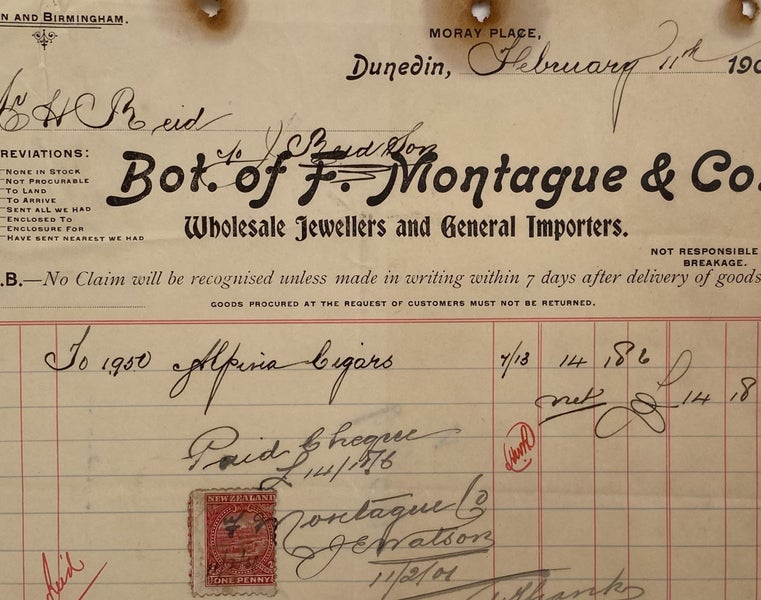 N AND BIRMINGHAM.
MORAY PLACE,
Dunedin, February 11th 190
H Reid
REVIATIONS:
NONE IN STOCK
NOT PROCURABLE
TO LAND
TO ARRIVE
SENT ALL WE HAD
ENCLOSED TO
ENCLOSURE FOR
HAVE SENT NEAREST WE HAD
J Reid Son
Bot. of F. Montague & Co.
Wholesale Jewellers and General Importers.
NOT RESPONSIBLE
BREAKAGE.
.B.—No Claim will be recognised unless made in writing within 7 days after delivery of goods
GOODS PROCURED AT THE REQUEST OF CUSTOMERS MUST NOT BE RETURNED.
To 1950 Alpina Cigars 7/13 14 18 6
net £ 14 18
Paid Cheque
£14/18/6
NEW ZEALAND
Montague Co
J Watson
ONE PENNY
11/2/01
Paid
Thanks